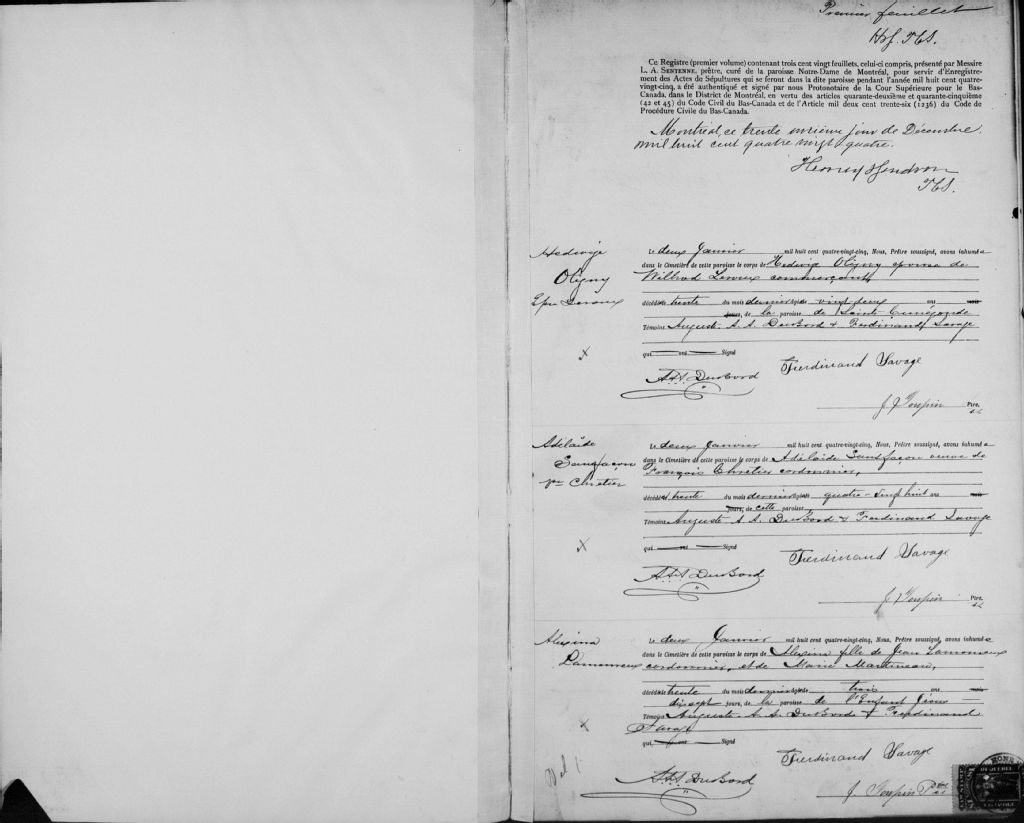 Premier feuillet
Ce Registre (premier volume) contenant trois cent vingt feuillets, celui-ci compris, présenté par Messire
L. A. Sentenne, prêtre, curé de la paroisse Notre-Dame de Montréal, pour servir d'Enregistre-
ment des Actes de Sépultures qui se feront dans la dite paroisse pendant l'année mil huit cent quatre-
vingt-cinq, a été authentiqué et signé par nous Protonotaire de la Cour Supérieure pour le Bas-
Canada, dans le District de Montréal, en vertu des articles quarante-deuxième et quarante-cinquième
(42 et 45) du Code Civil du Bas-Canada et de l'Article mil deux cent trente-six (1236) du Code de
Procédure Civile du Bas-Canada.
Montréal, ce trente unième jour de Décembre
mil huit cent quatre vingt quatre.
Hedwige
Oligny
Epse Leroux
Le deux Janvier mil huit cent quatre-vingt-cinq, Nous, Prêtre soussigné, avons inhumé e
dans le Cimetière de cette paroisse le corps de Hedwige Oligny épouse de
Wilbrod Leroux commerçant,
décédée le trente du mois dernier âgée de vingt deux ans mois
jours, de la paroisse de Sainte Cunégonde
Témoins Auguste A. A. DuBord & Ferdinand Savage
qui ont Signé
Ferdinand Savage
AAA DuBord
Ptre.
Adélaïde
Sansfaçon
Vve Chretier
Le deux Janvier mil huit cent quatre-vingt-cinq, Nous, Prêtre soussigné, avons inhumé e
dans le Cimetière de cette paroisse le corps de Adélaïde Sansfaçon veuve de
François Chretier cordonnier,
décédée trente du mois dernier âgée de quatre-vingt huit ans mois
jours, de cette paroisse
Témoins Auguste A. A. DuBord & Ferdinand Savage
qui ont Signé
Ferdinand Savage
AAA DuBord
Ptre.
Alexina
Lamoureux
Le deux Janvier mil huit cent quatre-vingt-cinq, Nous, Prêtre soussigné, avons inhumé e
dans le Cimetière de cette paroisse le corps de Alexina fille de Jean Lamoureux
cordonnier, et de Marie Martineau,
décédée trente du mois dernier âgée de trois ans mois
dix sept jours, de la paroisse de l'Enfant Jésus
Témoins Auguste A. A. DuBord & Ferdinand
Savage
qui ont Signé
Ferdinand Savage
AAA DuBord